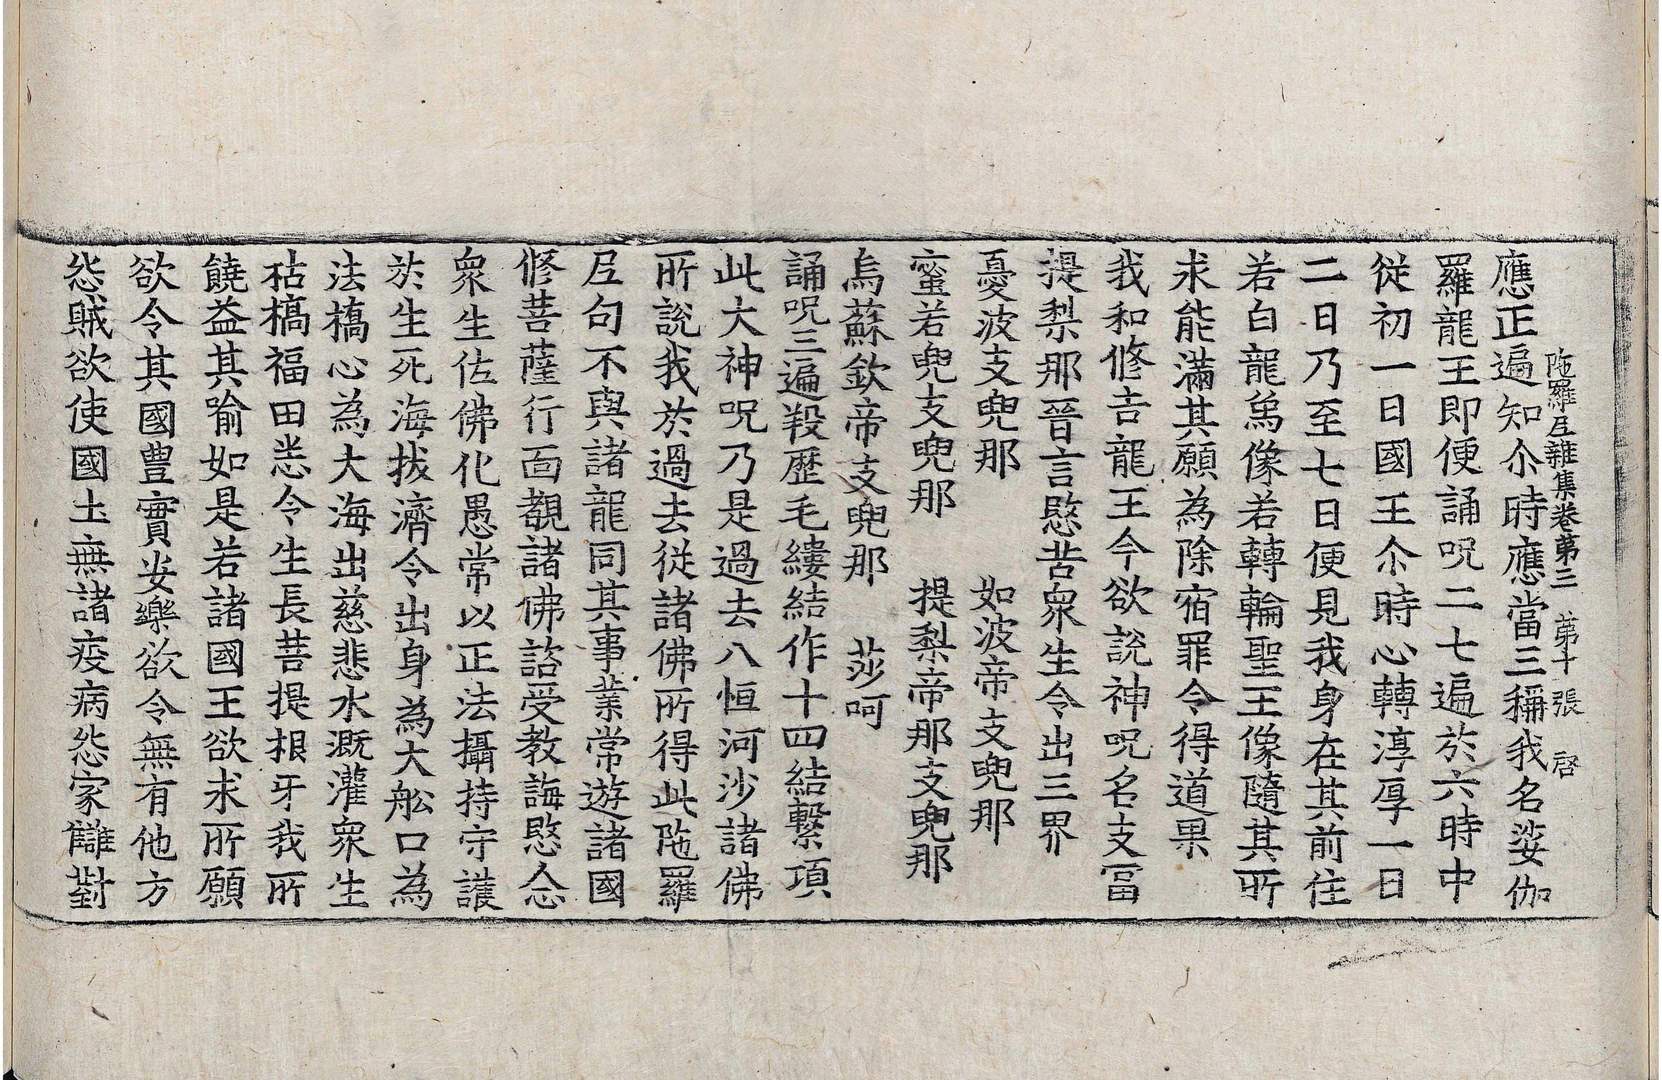 陁羅尼雜集卷第三　第十張　啓
應正遍知尒時應當三稱我名娑伽
羅龍王即便誦呪二七遍於六時中
從初一日國王尒時心轉淳厚一日
二日乃至七日便見我身在其前住
若白龍爲像若轉輪聖王像隨其所
求能滿其願為除宿罪令得道果
我和修吉龍王今欲說神呪名支富
提梨那晉言愍苦衆生令出三界
憂波支兜那　如波帝支兜那
蜜若兜支兜那　提梨帝那支兜那
烏蘇欽帝支兜那　莎呵
誦呪三遍羖歷毛縷結作十四結繫項
此大神呪乃是過去八恒河沙諸佛
所說我於過去從諸佛所得此陁羅
尼句不與諸龍同其事業常遊諸國
修菩薩行面覲諸佛諮受教誨愍念
衆生佐佛化愚常以正法攝持守護
於生死海拔濟令出身為大舩口為
法橋心為大海出慈悲水溉灌衆生
枯槁福田悉令生長菩提根牙我所
饒益其喻如是若諸國王欲求所願
欲令其國豊實安樂欲令無有他方
怨賊欲使國土無諸疫病怨家讎對